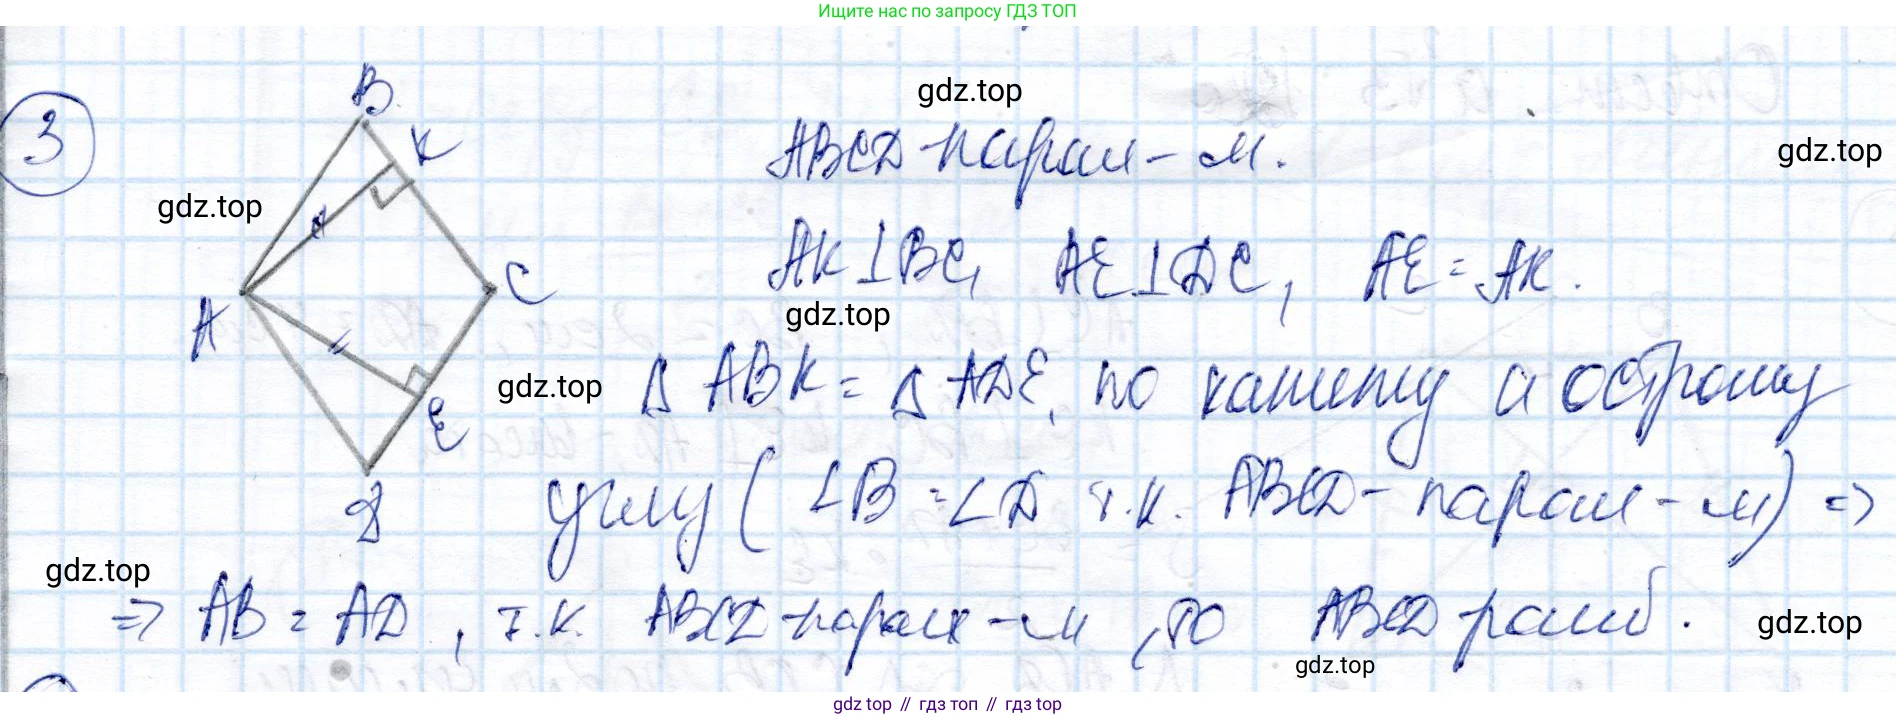 Ищите нас по запросу ГДЗ ТОП
3
B
K
A
C
E
D
gdz.top
gdz.top
gdz.top
ABCD - парал - м.
AK⊥BC, AE⊥DC, AE = AK.
gdz.top
gdz.top
Δ ABK = Δ ADE, по катету и острому
углу (∠B = ∠D т.к. ABCD - парал - м) =>
gdz.top
=> AB = AD, т.к. ABCD - парал - м, то ABCD ромб.
gdz.top
gdz.top
gdz top // гдз топ // гдз top